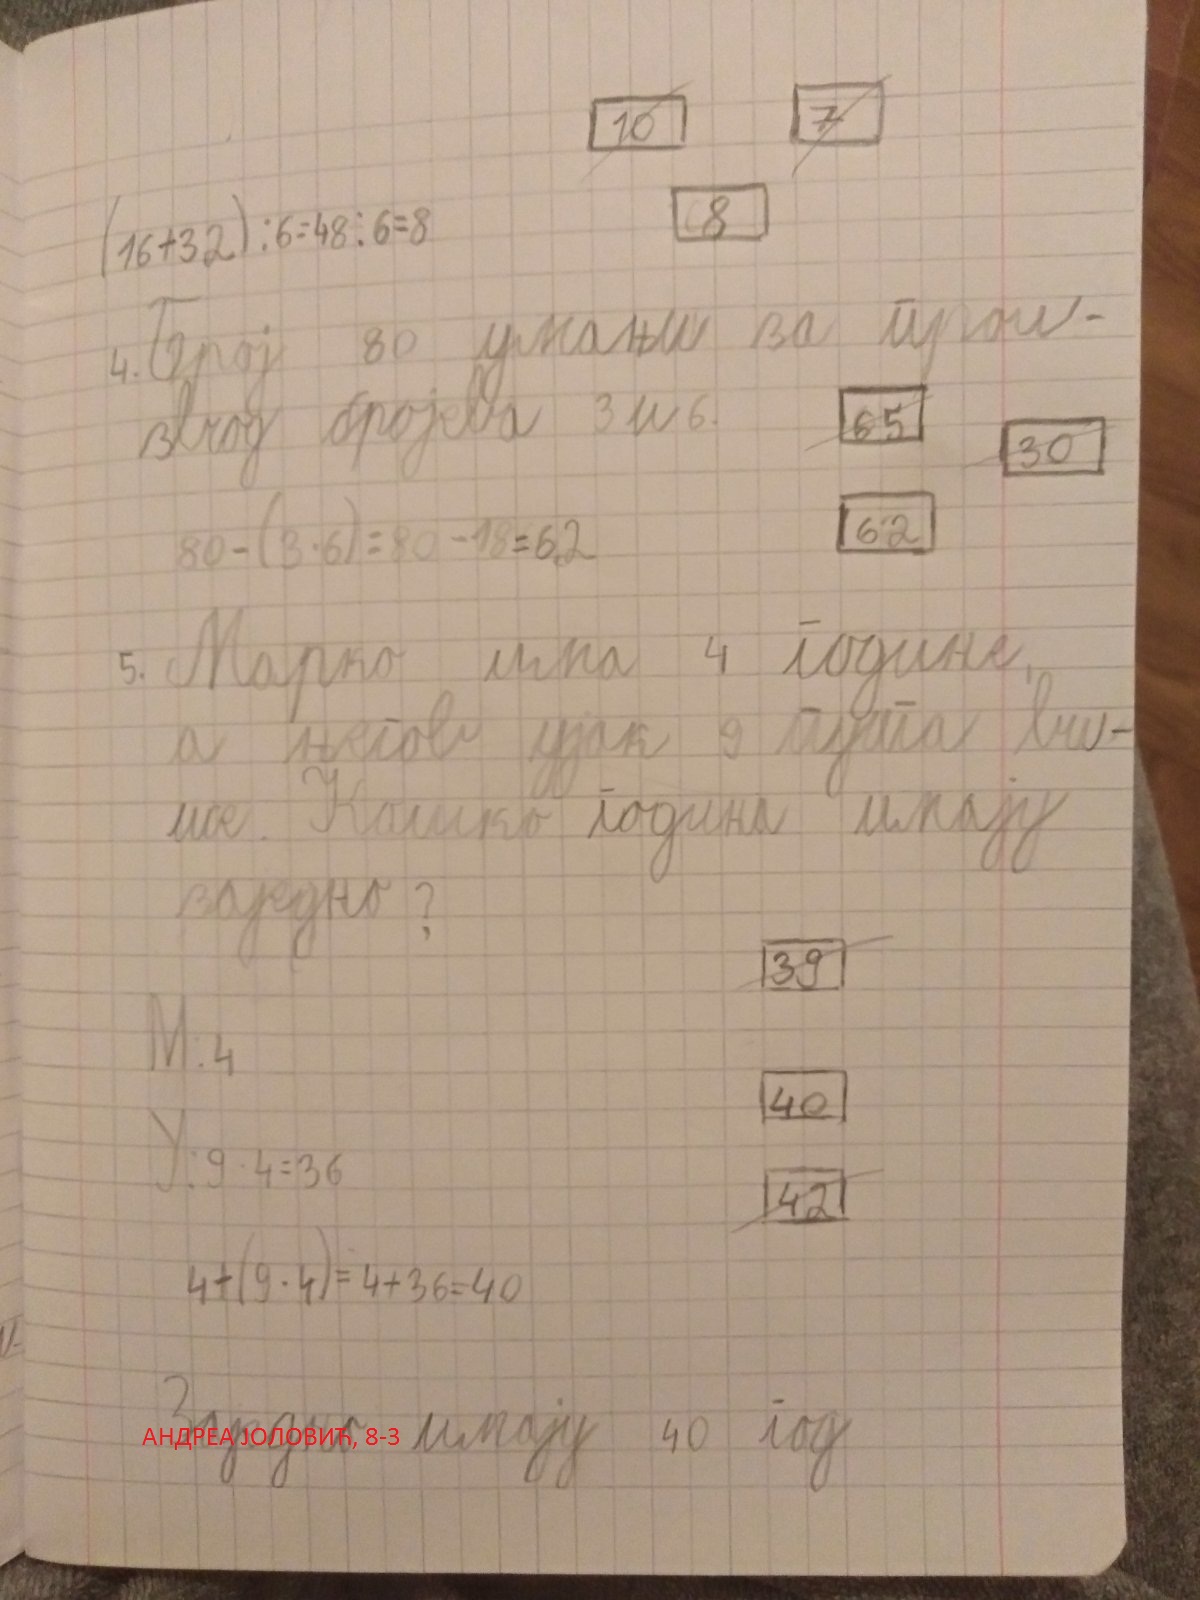 10 7
(16+32):6=48:6=8 8
4. Број 80 умањи за произ-
звод бројева 3 и 6. 65
30
80-(3·6)=80-18=62 62
5. Марко има 4 године,
а његов ујак 9 пута ви-
ше. Колико година имају
заједно?
39
М:4
40
У:9·4=36
42
4+(9·4)=4+36=40
Заједно имају 40 год
АНДРЕА ЈОЛОВИЋ, 8-3